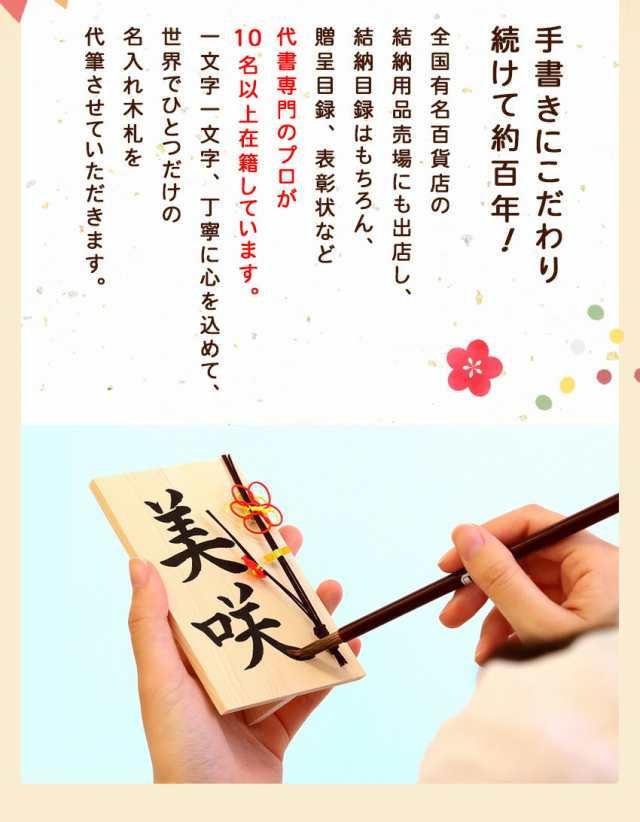 手書きにこだわり
続けて約百年！
全国有名百貨店の
結納用品売場にも出店し、
結納目録はもちろん、
贈呈目録、表彰状など
代書専門のプロが
10名以上在籍しています。
一文字一文字、丁寧に心を込めて、
世界でひとつだけの
名入れ木札を
代筆させていただきます。
美咲